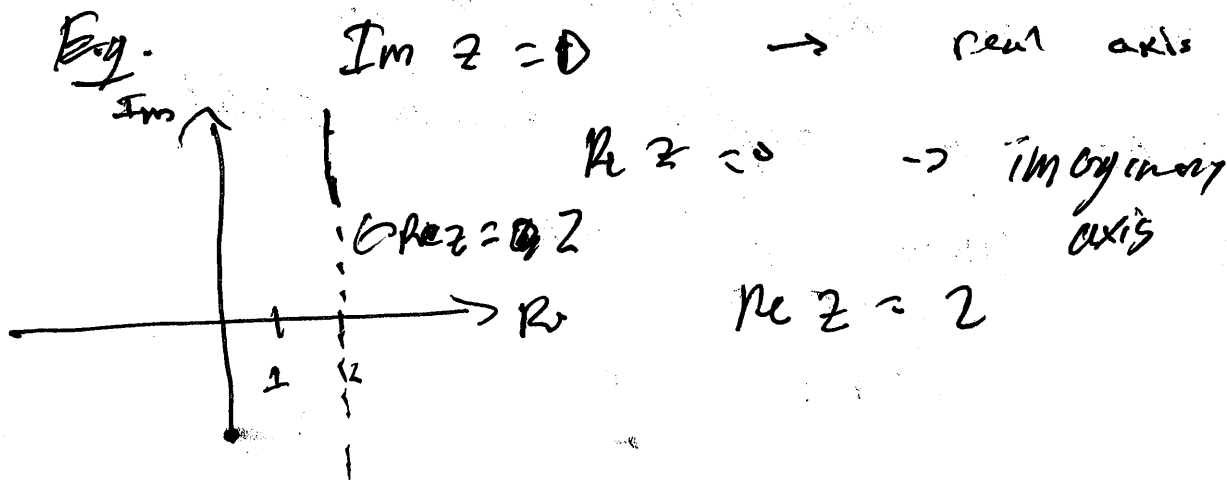 Eg. Im z = 0 → real axis
Im
Re z = 0 → imaginary axis
Re z = 2
Re z = 2
Re
1 2